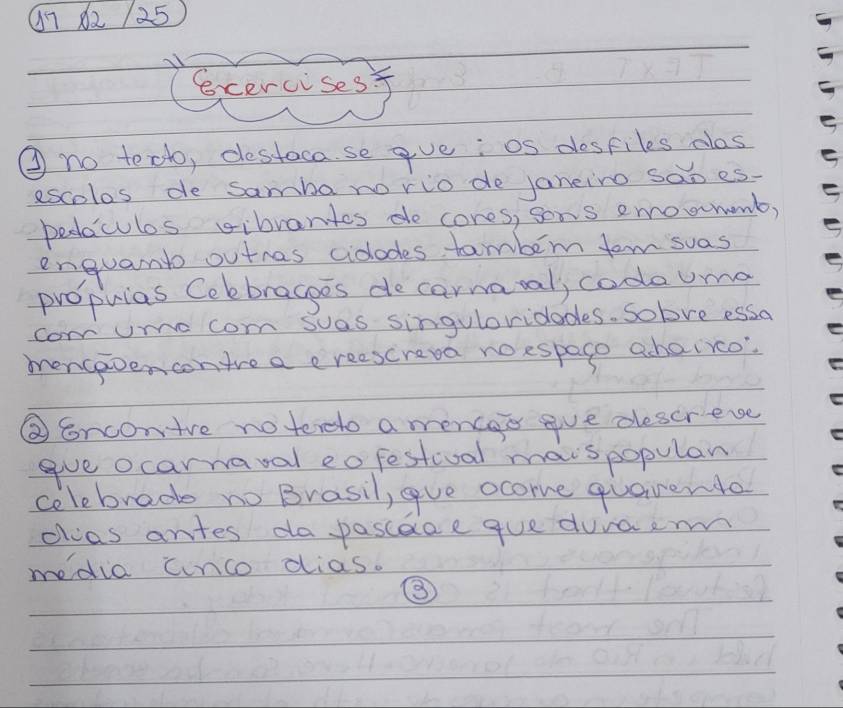 17 02 / 25
Excercises:
① no texto, destaca.se que : os desfiles das
escolas de samba no rio de janeiro são es-
petáculos vibrantes de cores, sons e movimento,
enquanto outras cidades também tem suas
próprias Celebrações de carnaval, cada uma
com uma com suas singularidades. Sobre essa
menção encontre a e reescreva no espaço abaixo:
② Encontre no texto a menção que descreve
que o carnaval e o festival mais popular
celebrado no Brasil, que ocorre quarenta
dias antes da pascóa e que dura em
média cinco dias.
③